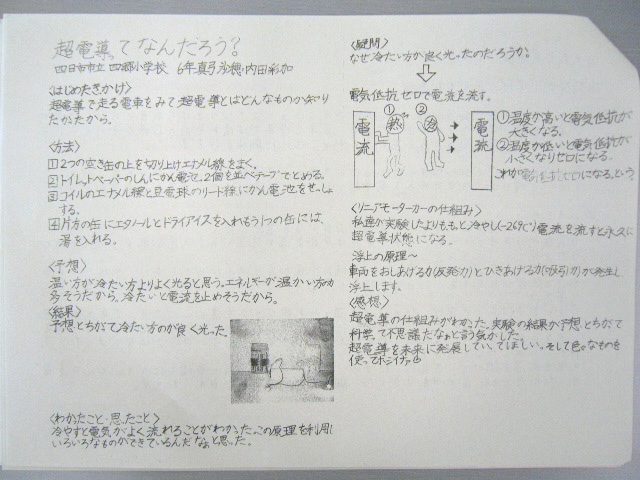 超電導ってなんだろう?
四日市市立 四郷小学校 6年真弓沙穂・内田彩加
〈はじめたきっかけ〉
超電導で走る電車をみて超電導とはどんなものか知り
たかったから。
〈方法〉
1 2つの空き缶の上を切り上げエナメル線をまく。
2 トイレットペーパーのしんにかん電池2個を並べテープでとめる。
3 コイルのエナメル線と豆電球のリード線にかん電池をせっしょ
する。
4 片方の缶にエタノールとドライアイスを入れもう1つの缶には、
湯を入れる。
〈予想〉
温い方が冷たい方よりよく光ると思う。エネルギーが温かい方が
多そうだから、冷たいと電流を止めそうだから。
〈結果〉
予想とちがって冷たい方のが良く光った。
〈わかったこと・思ったこと〉
冷やすと電気がよく流れることがわかった。この原理を利用し
いろいろなものができているんだなぁと思った。
〈疑問〉
なぜ冷たい方が良く光ったのだろうか。
電気抵抗ゼロで電流を流す。
① ②
電流 熱 冷 電流
①温度が高いと電気抵抗が
大きくなる。
②温度が低いと電気抵抗が
小さくなりゼロになる。
これが電気抵抗ゼロになるという
〈リニアモーターカーの仕組み〉
私達が実験したよりももっと冷やし(-269℃)電流を流すと永久に
超電導状態になる。
浮上の原理~
車両をおしあげる力(反発力)とひきあげる力(吸引力)が発生し
浮上します。
〈感想〉
超電導の仕組みがわかった。実験の結果が予想とちがって
科学って不思議だなぁと言う気がした。
超電導を未来に発展していってほしい。そして色々なものを
使って